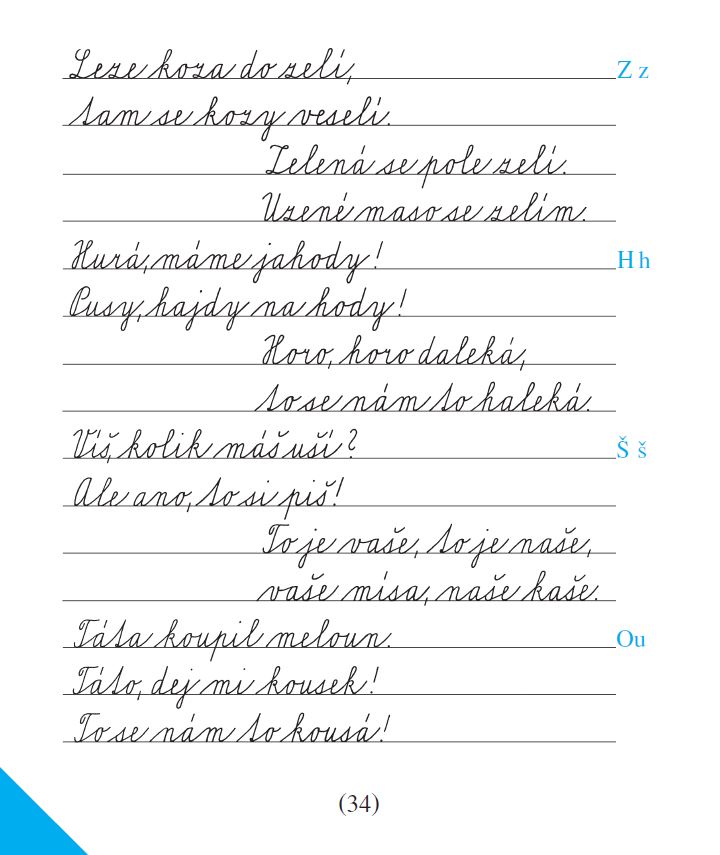 Leze koza do zelí, Z z
tam se kozy veselí.
Zelená se pole zelí.
Uzené maso se zelím.
Hurá, máme jahody! H h
Pusy, hajdy na hody!
Horo, horo daleká,
to se nám to haleká.
Víš, kolik máš uší? Š š
Ale ano, to si piš!
To je vaše, to je naše,
vaše mísa, naše kaše.
Táta koupil meloun. Ou
Táto, dej mi kousek!
To se nám to kousá!
(34)